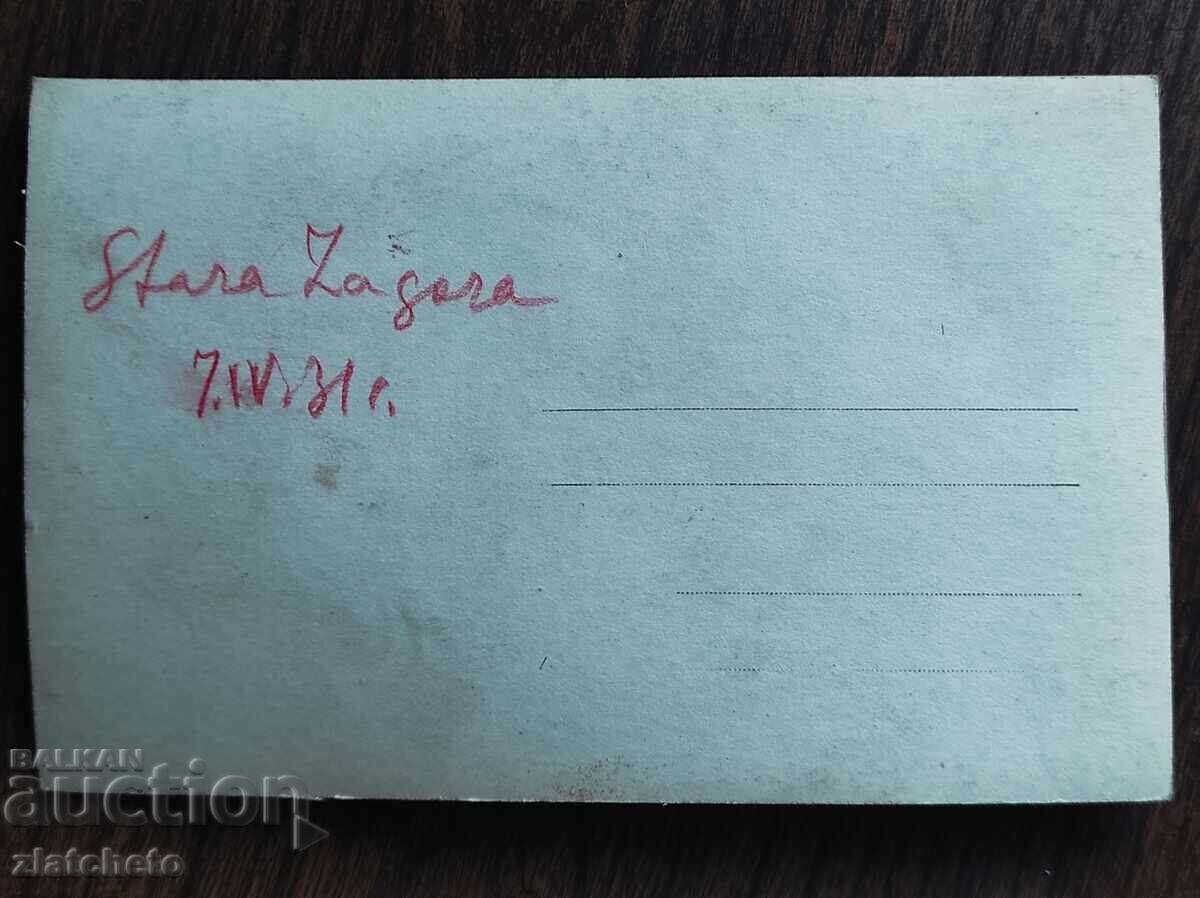 Stara Zagora
7.IV.31 г.
BALKAN
auction
zlatcheto